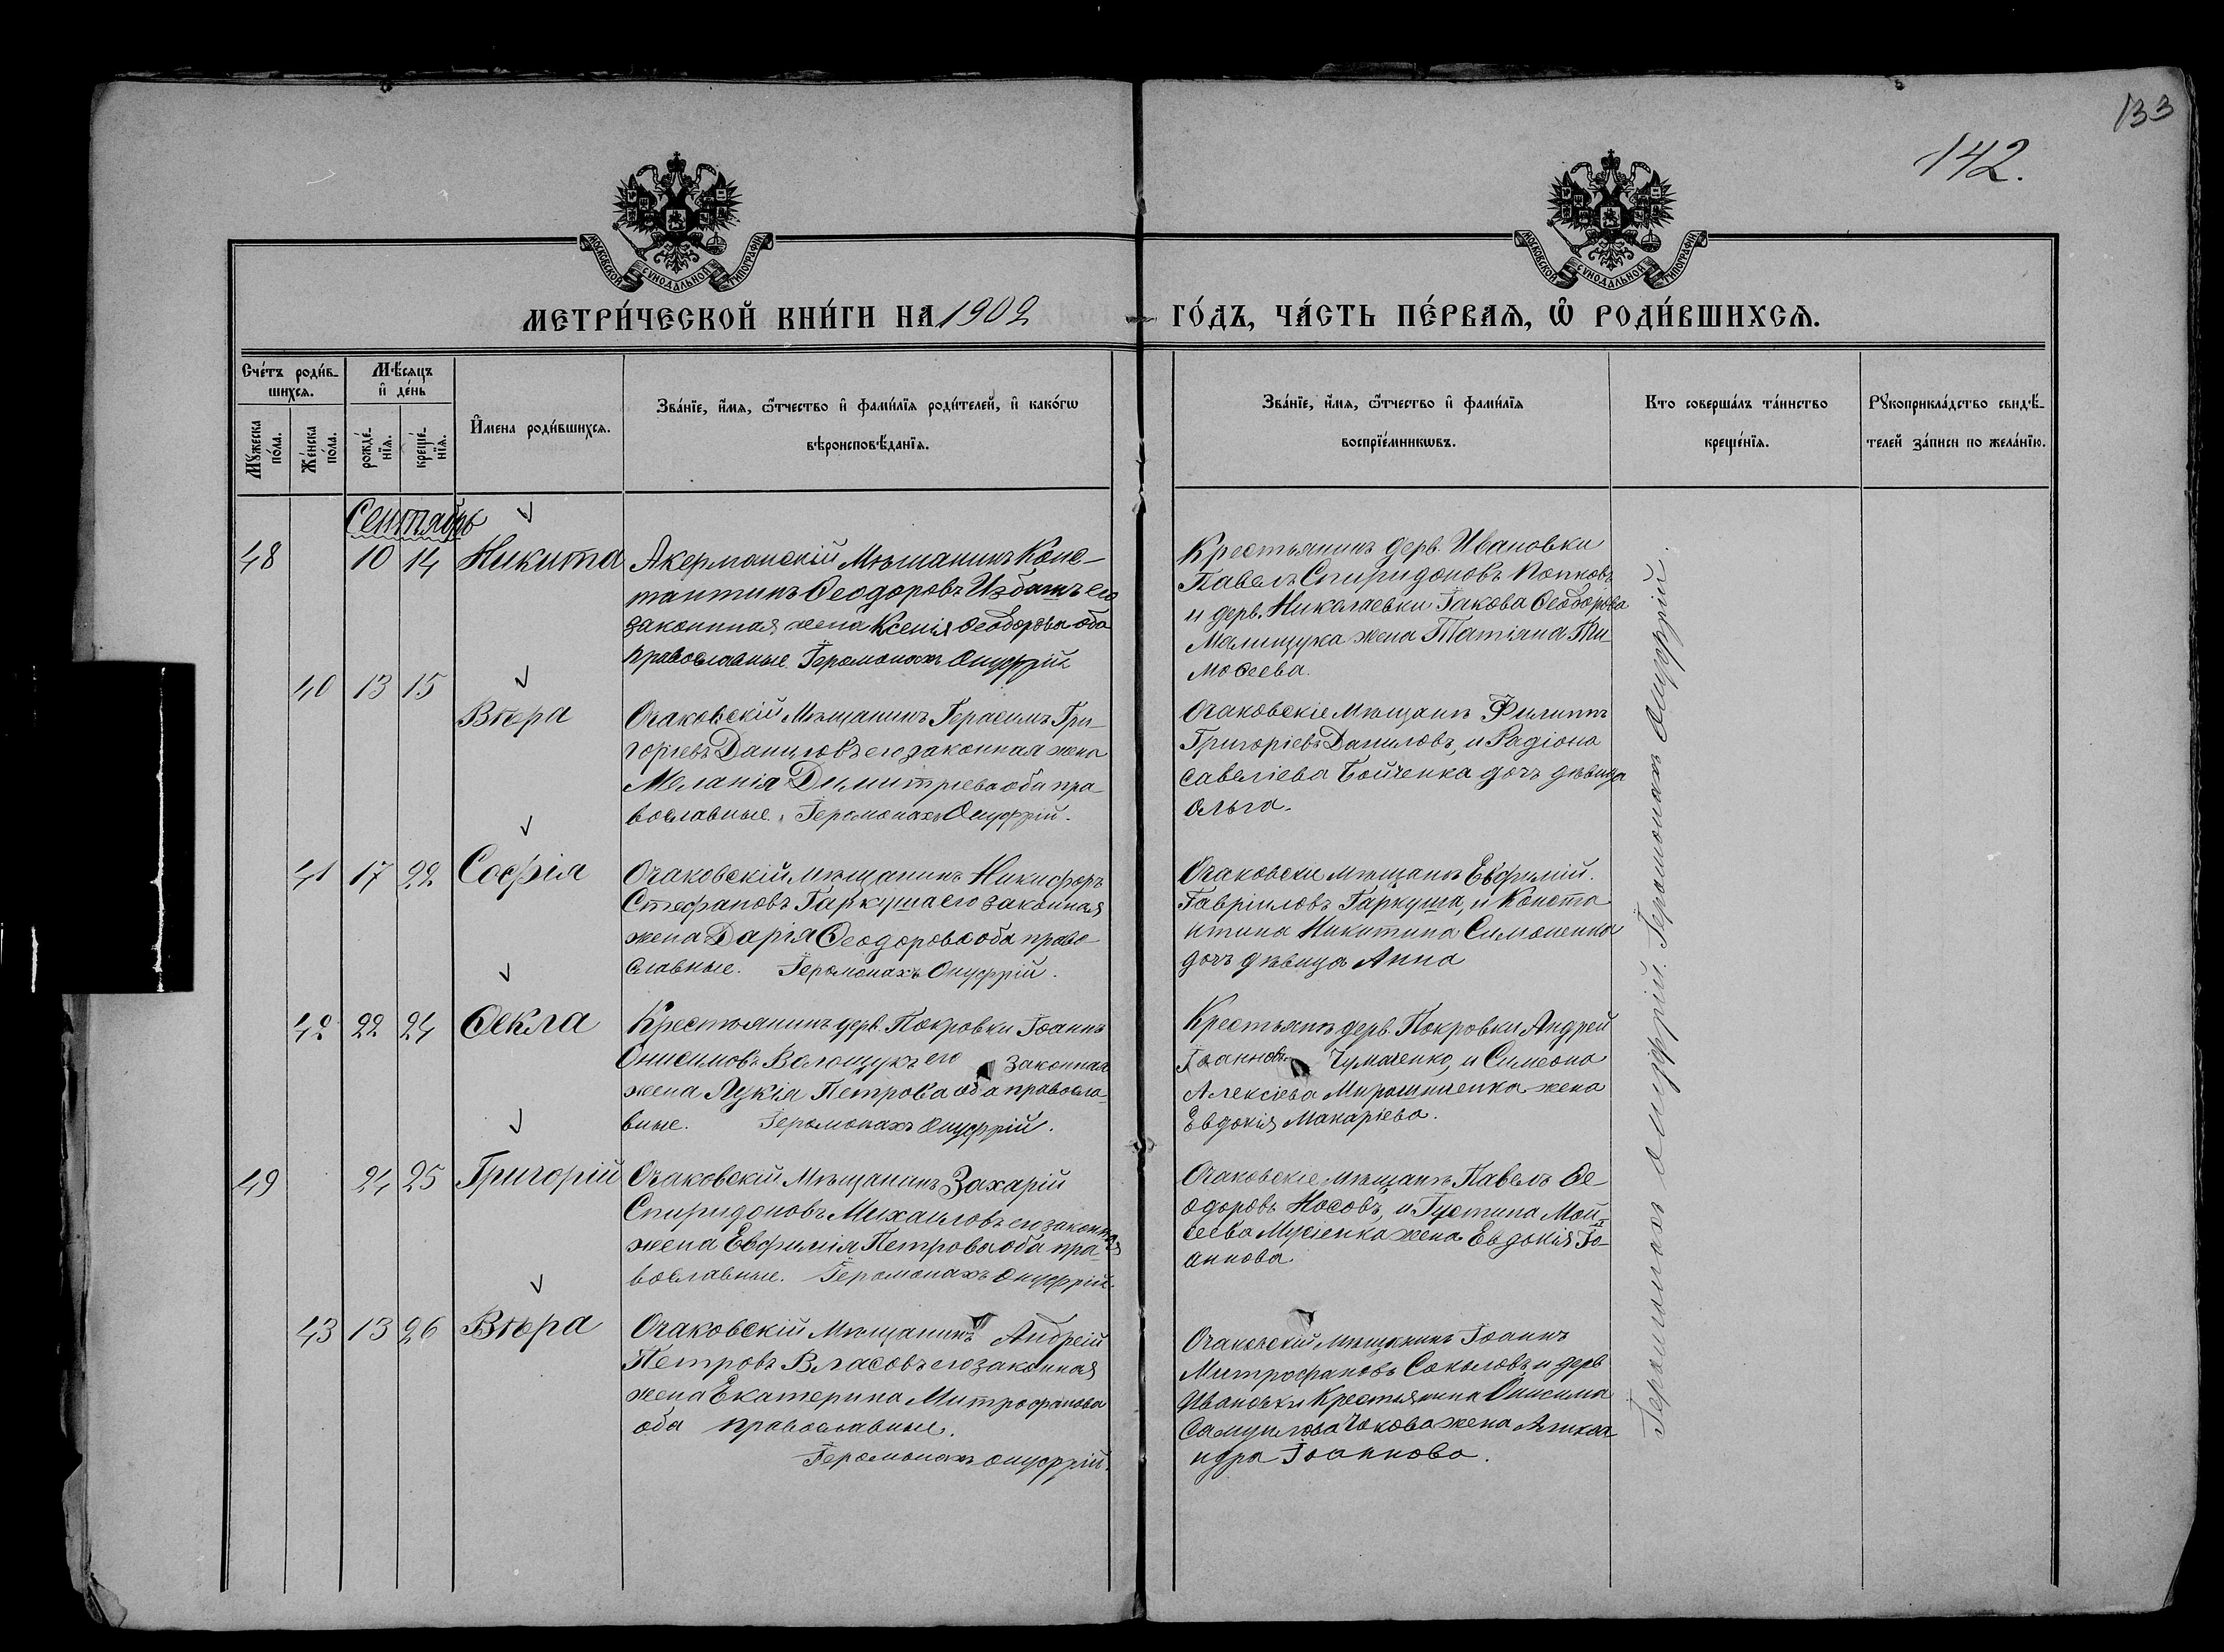 133
142.
МОСКОВСКОЙ СѴНОДАЛЬНОЙ ТИПОГРАФІИ
МОСКОВСКОЙ СѴНОДАЛЬНОЙ ТИПОГРАФІИ
МЕТРИ́ЧЕСКОЙ КНИ́ГИ НА 1902 ГО́ДЪ, ЧА́СТЬ ПЕ́РВАѦ, Ѡ҆ РОДИ́ВШИХСѦ.
Сче́тъ роди́в-
шихсѧ.
Мѣ́сѧцъ
и҆ де́нь
Мꙋ́жеска
по́ла.
Же́нска
по́ла.
рожде́-
нїѧ.
креще́-
нїѧ.
И҆мена роди́вшихсѧ.
Зва́нїе, и҆́мѧ, ѻ҆́тчество и҆ фами́лїѧ роди́телей, и҆ како́гѡ
вѣроисповѣ́данїѧ.
Зва́нїе, и҆́мѧ, ѻ҆́тчество и҆ фами́лїѧ
воспрїе́мникѡвъ.
Кто соверша́лъ та́инство
креще́нїѧ.
Рꙋкоприкла́дство свидѣ́-
телей за́писи по жела́нїю.
Сентябрь
48 10 14 Никита
Акерманскій Мѣщанинъ Конс-
тантинъ Ѳеодоровъ Избашъ его
законная жена Ксенія Ѳеодорова оба
православные. Іеромонахъ Онуфрій
Крестьянинъ дерв. Ивановки
Павелъ Спиридоновъ Попковъ
и дерв. Николаевки Іакова Ѳеодорова
Малищука жена Татіана Ти-
моѳеева.
40 13 15 Вѣра
Очаковскій Мѣщанинъ Герасимъ Гри-
горіевъ Даниловъ его законная жена
Меланія Димитріева оба пра-
вославные. Іеромонахъ Онуфрій.
Очаковскіе Мѣщанъ Филиппъ
Григоріевъ Даниловъ, и Радіона
Савеліева Бойченка дочъ дѣвица
Ольга.
41 17 22 Софія
Очаковскій мѣщанинъ Никифоръ
Стефановъ Гаркуша его законная
жена Дарія Ѳеодорова оба право-
славные. Іеромонахъ Онуфрій.
Очаковскіе мѣщанъ Евфимій
Гавріиловъ Гаркуша, и Конста-
нтина Никитина Симоненка
дочъ дѣвица Анна
42 22 24 Ѳекла
Крестьянинъ дерв. Покровки Іоаннъ
Онисимовъ Волощукъ его законная
жена Лукія Петрова оба правосла-
вные. Іеромонахъ Онуфрій.
Крестьянъ дерв. Покровки Андрей
Іоанновъ Чумаченко, и Симеона
Алексіева Мирошниченка жена
Евдокія Макаріева.
49 24 25 Григорій
Очаковскій Мѣщанинъ Захарій
Спиридоновъ Михаиловъ его законная
жена Евфимія Петрова оба пра-
вославные. Іеромонахъ Онуфрій.
Очаковскіе мѣщанъ Павелъ Ѳе-
одоровъ Носовъ, и Густина Мои-
сеева жена Евдокія Іо-
аннова
43 13 26 Вѣра
Очаковскій Мѣщанинъ Андрей
Петровъ Власовъ его законная
жена Екатерина Митрофанова
оба православные.
Іеромонахъ Онуфрій.
Очаковскій мѣщанинъ Іоаннъ
Митрофановъ Соколовъ и дерв
Ивановки Крестьянина Онисима
Самуилова жена Алексан
ндра Іоаннова.
Іеромонахъ Онуфрій. Іеромонахъ Онуфрій.